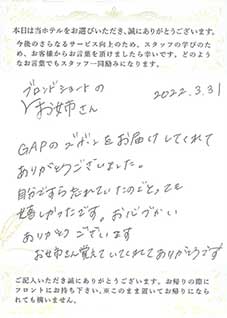 本日は当ホテルをお選びいただき、誠にありがとうございます。
今後のさらなるサービス向上のため、スタッフの学びのため、お客様からお言葉を頂けましたら幸いです。どのようなお言葉でもスタッフ一同励みになります。
ブロンドショートの
お姉さん
2022.3.31
GAPのズボンをお届けしてくれて
ありがとうございました。
自分ですら忘れていたのでとっても
嬉しかったです。お心づかい
ありがとうございます
お姉さん覚えていてくれてありがとうです
ご記入いただき誠にありがとうございます。お帰りの際に
フロントにお持ち下さい。※このまま置いてお帰りになられても構いません。